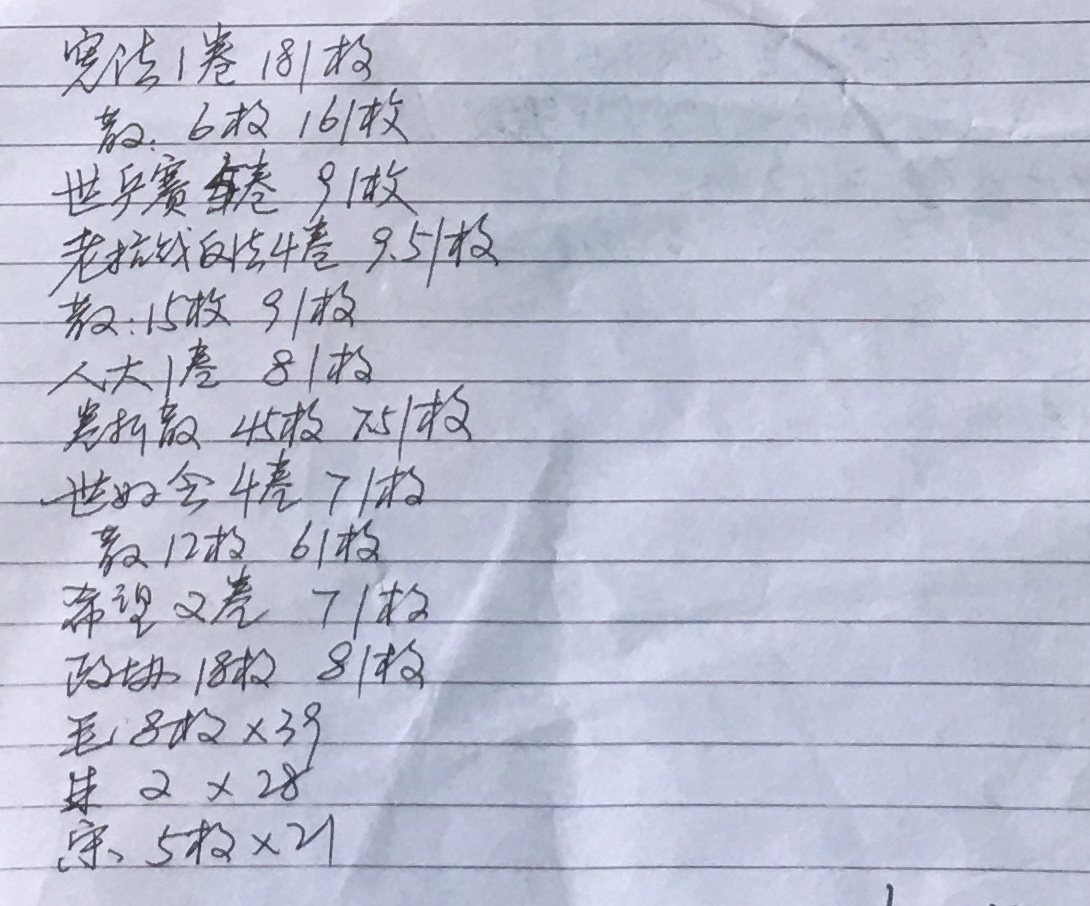 宪法1卷 18/枚
散:6枚 16/枚
世乒赛 卷 9/枚
老抗战 4卷 9.5/枚
散:15枚 9/枚
人大1卷 8/枚
卷拆散 45枚 7.5/枚
世妇会4卷 7/枚
散12枚 6/枚
希望2卷 7/枚
政协18枚 8/枚
毛:8枚×39
朱 2×28
宋、5枚×21